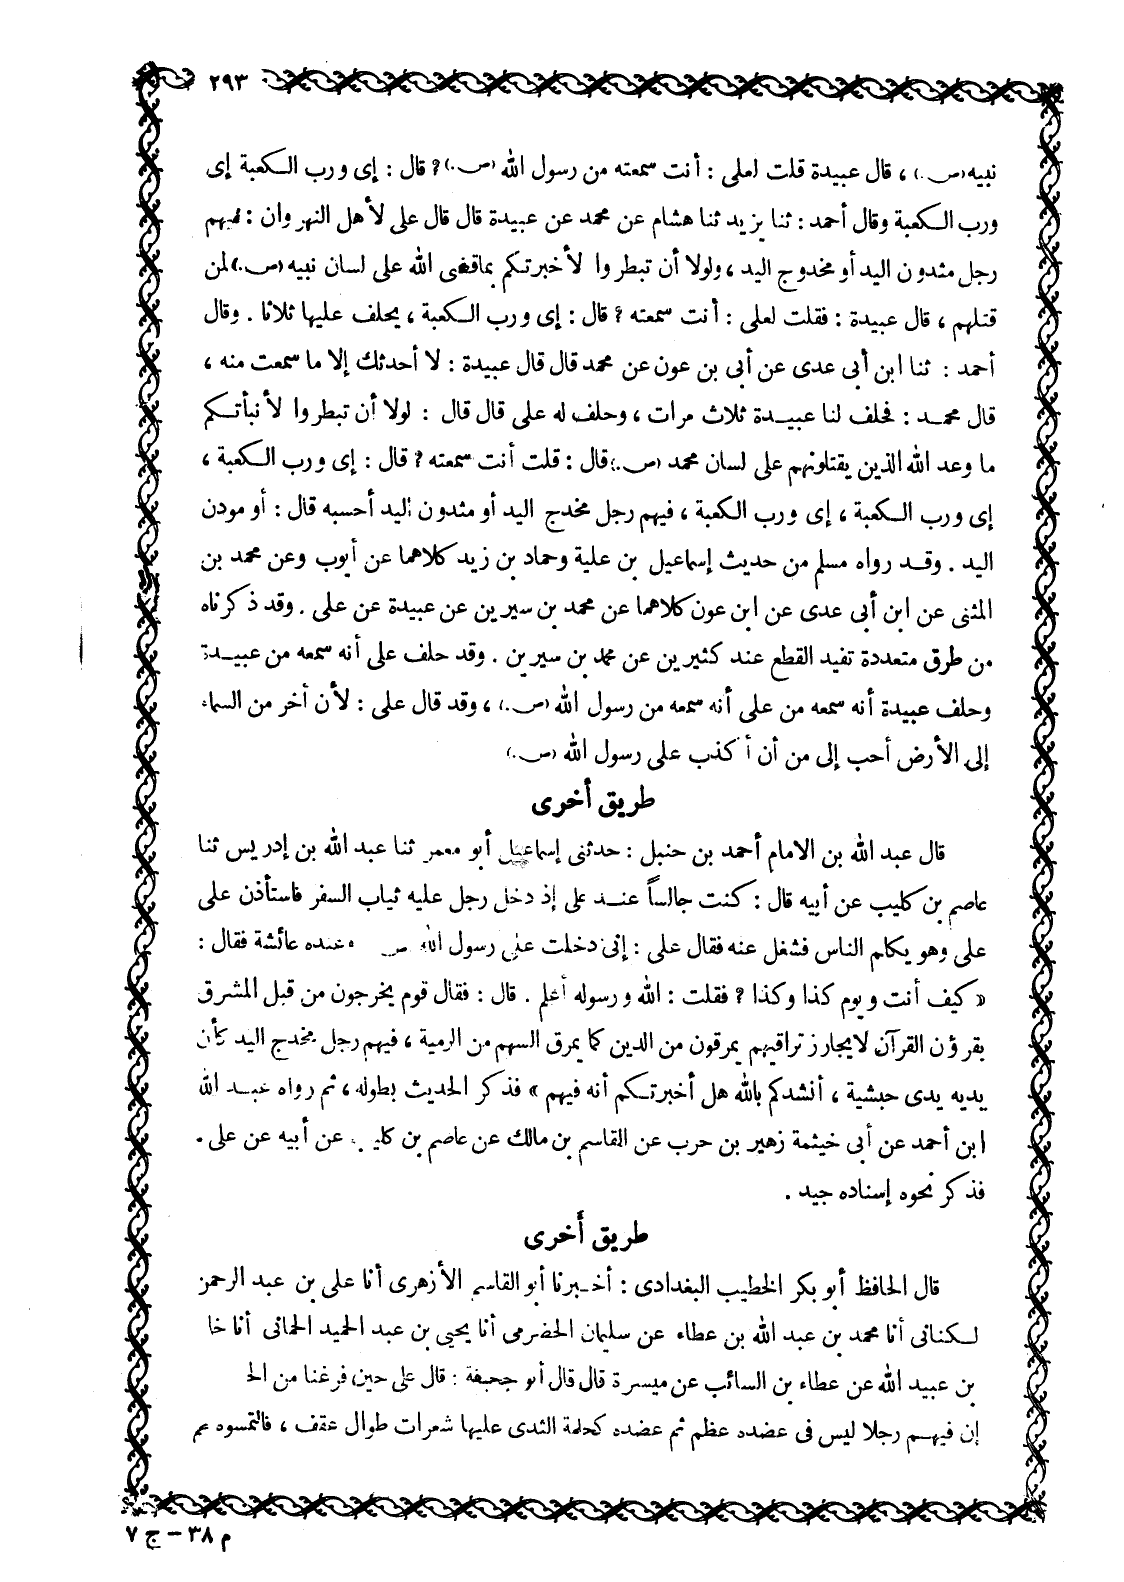 ٢٩٣
نبيه (ص.) ، قال عبيدة قلت لعلى : أنت سمعته من رسول الله (ص.) ؟ قال : إى ورب الكعبة إى
ورب الكعبة وقال أحمد : ثنا يزيد ثنا هشام عن محمد عن عبيدة قال قال على لأهل النهروان : فيهم
رجل مثدون اليد أو مخدوج اليد ، ولولا أن تبطروا لأخبرتكم بما قضى الله على لسان نبيه (ص.) لمن
قتلهم ، قال عبيدة : فقلت لعلى : أنت سمعته ؟ قال : إى ورب الكعبة ، يحلف عليها ثلاثا . وقال
أحمد : ثنا ابن أبى عدى عن أبى بن عون عن محمد قال قال عبيدة : لا أحدثك إلا ما سمعت منه ،
قال محمد : فحلف لنا عبيدة ثلاث مرات ، وحلف له على قال قال : لولا أن تبطروا لأنبأتكم
ما وعد الله الذين يقتلونهم على لسان محمد (ص.) قال : قلت أنت سمعته ؟ قال : إى ورب الكعبة ،
إى ورب الكعبة ، إى ورب الكعبة ، فيهم رجل مخدج اليد أو مثدون اليد أحسبه قال : أو مودن
اليد . وقد رواه مسلم من حديث إسماعيل بن علية وحماد بن زيد كلاهما عن أيوب وعن محمد بن
المثنى عن ابن أبى عدى عن ابن عون كلاهما عن محمد بن سيرين عن عبيدة عن على . وقد ذكرناه
من طرق متعددة تفيد القطع عند كثيرين عن محمد بن سيرين . وقد حلف على أنه سمعه من عبيدة
وحلف عبيدة أنه سمعه من على أنه سمعه من رسول الله (ص.) ، وقد قال على : لأن أخر من السماء
إلى الأرض أحب إلى من أن أكذب على رسول الله (ص.)
طريق أخرى
قال عبد الله بن الامام أحمد بن حنبل : حدثنى إسماعيل أبو معمر ثنا عبد الله بن إدريس ثنا
عاصم بن كليب عن أبيه قال : كنت جالساً عند على إذ دخل رجل عليه ثياب السفر فاستأذن على
على وهو يكلم الناس فشغل عنه فقال على : إنى دخلت على رسول الله ص وعنده عائشة فقال :
« كيف أنت ويوم كذا وكذا ؟ فقلت : الله ورسوله أعلم . قال : فقال قوم يخرجون من قبل المشرق
يقرؤن القرآن لا يجاوز تراقيهم يمرقون من الدين كما يمرق السهم من الرمية ، فيهم رجل مخدج اليد كأن
يديه يدى حبشية ، أنشدكم بالله هل أخبرتكم أنه فيهم » فذكر الحديث بطوله ، ثم رواه عبد الله
ابن أحمد عن أبى خيثمة زهير بن حرب عن القاسم بن مالك عن عاصم بن كليب عن أبيه عن على .
فذكر نحوه إسناده جيد .
طريق أخرى
قال الحافظ أبو بكر الخطيب البغدادى : أخبرنا أبو القاسم الأزهرى أنا على بن عبد الرحمن
لكنانى أنا محمد بن عبد الله بن عطاء عن سليمان الحضرمى أنا يحيى بن عبد الحميد الحمانى أنا خا
بن عبيد الله عن عطاء بن السائب عن ميسرة قال قال أبو جحيفة : قال على حين فرغنا من الح
إن فيهم رجلا ليس فى عضده عظم ثم عضده كحلمة الثدى عليها شعرات طوال عقف ، فالتمسوه
م ٣٨ - ج ٧